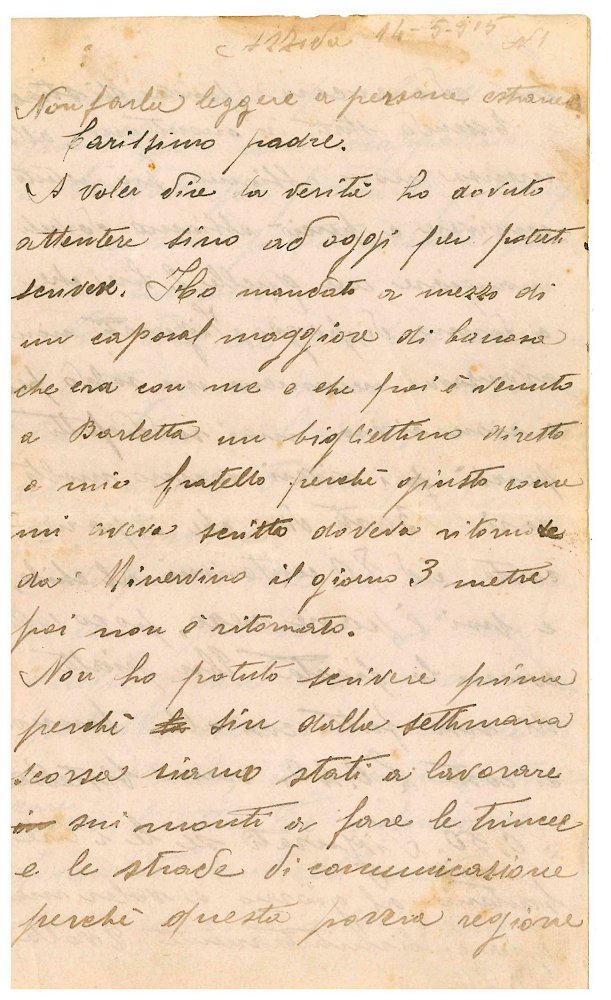 Azzida 14-5-915 N1
Non farla leggere a persone estranee.
Carissimo padre.
A voler dire la verità ho dovuto
attentere sino ad oggi per poterti
scrivere. Ho mandato a mezzo di
un caporal maggiore di
che era con me e che poi è venuto
a Barletta un bigliettino diretto
a mio fratello perchè giusto come
mi aveva scritto doveva ritornare
da Minervino il giorno 3 metre
poi non è ritornato.
Non ho potuto scrivere prima
perchè sin dalla settimana
scorsa siamo stati a lavorare
sui monti a fare le trincee
e le strade di comunicazione
perchè questa povera regione